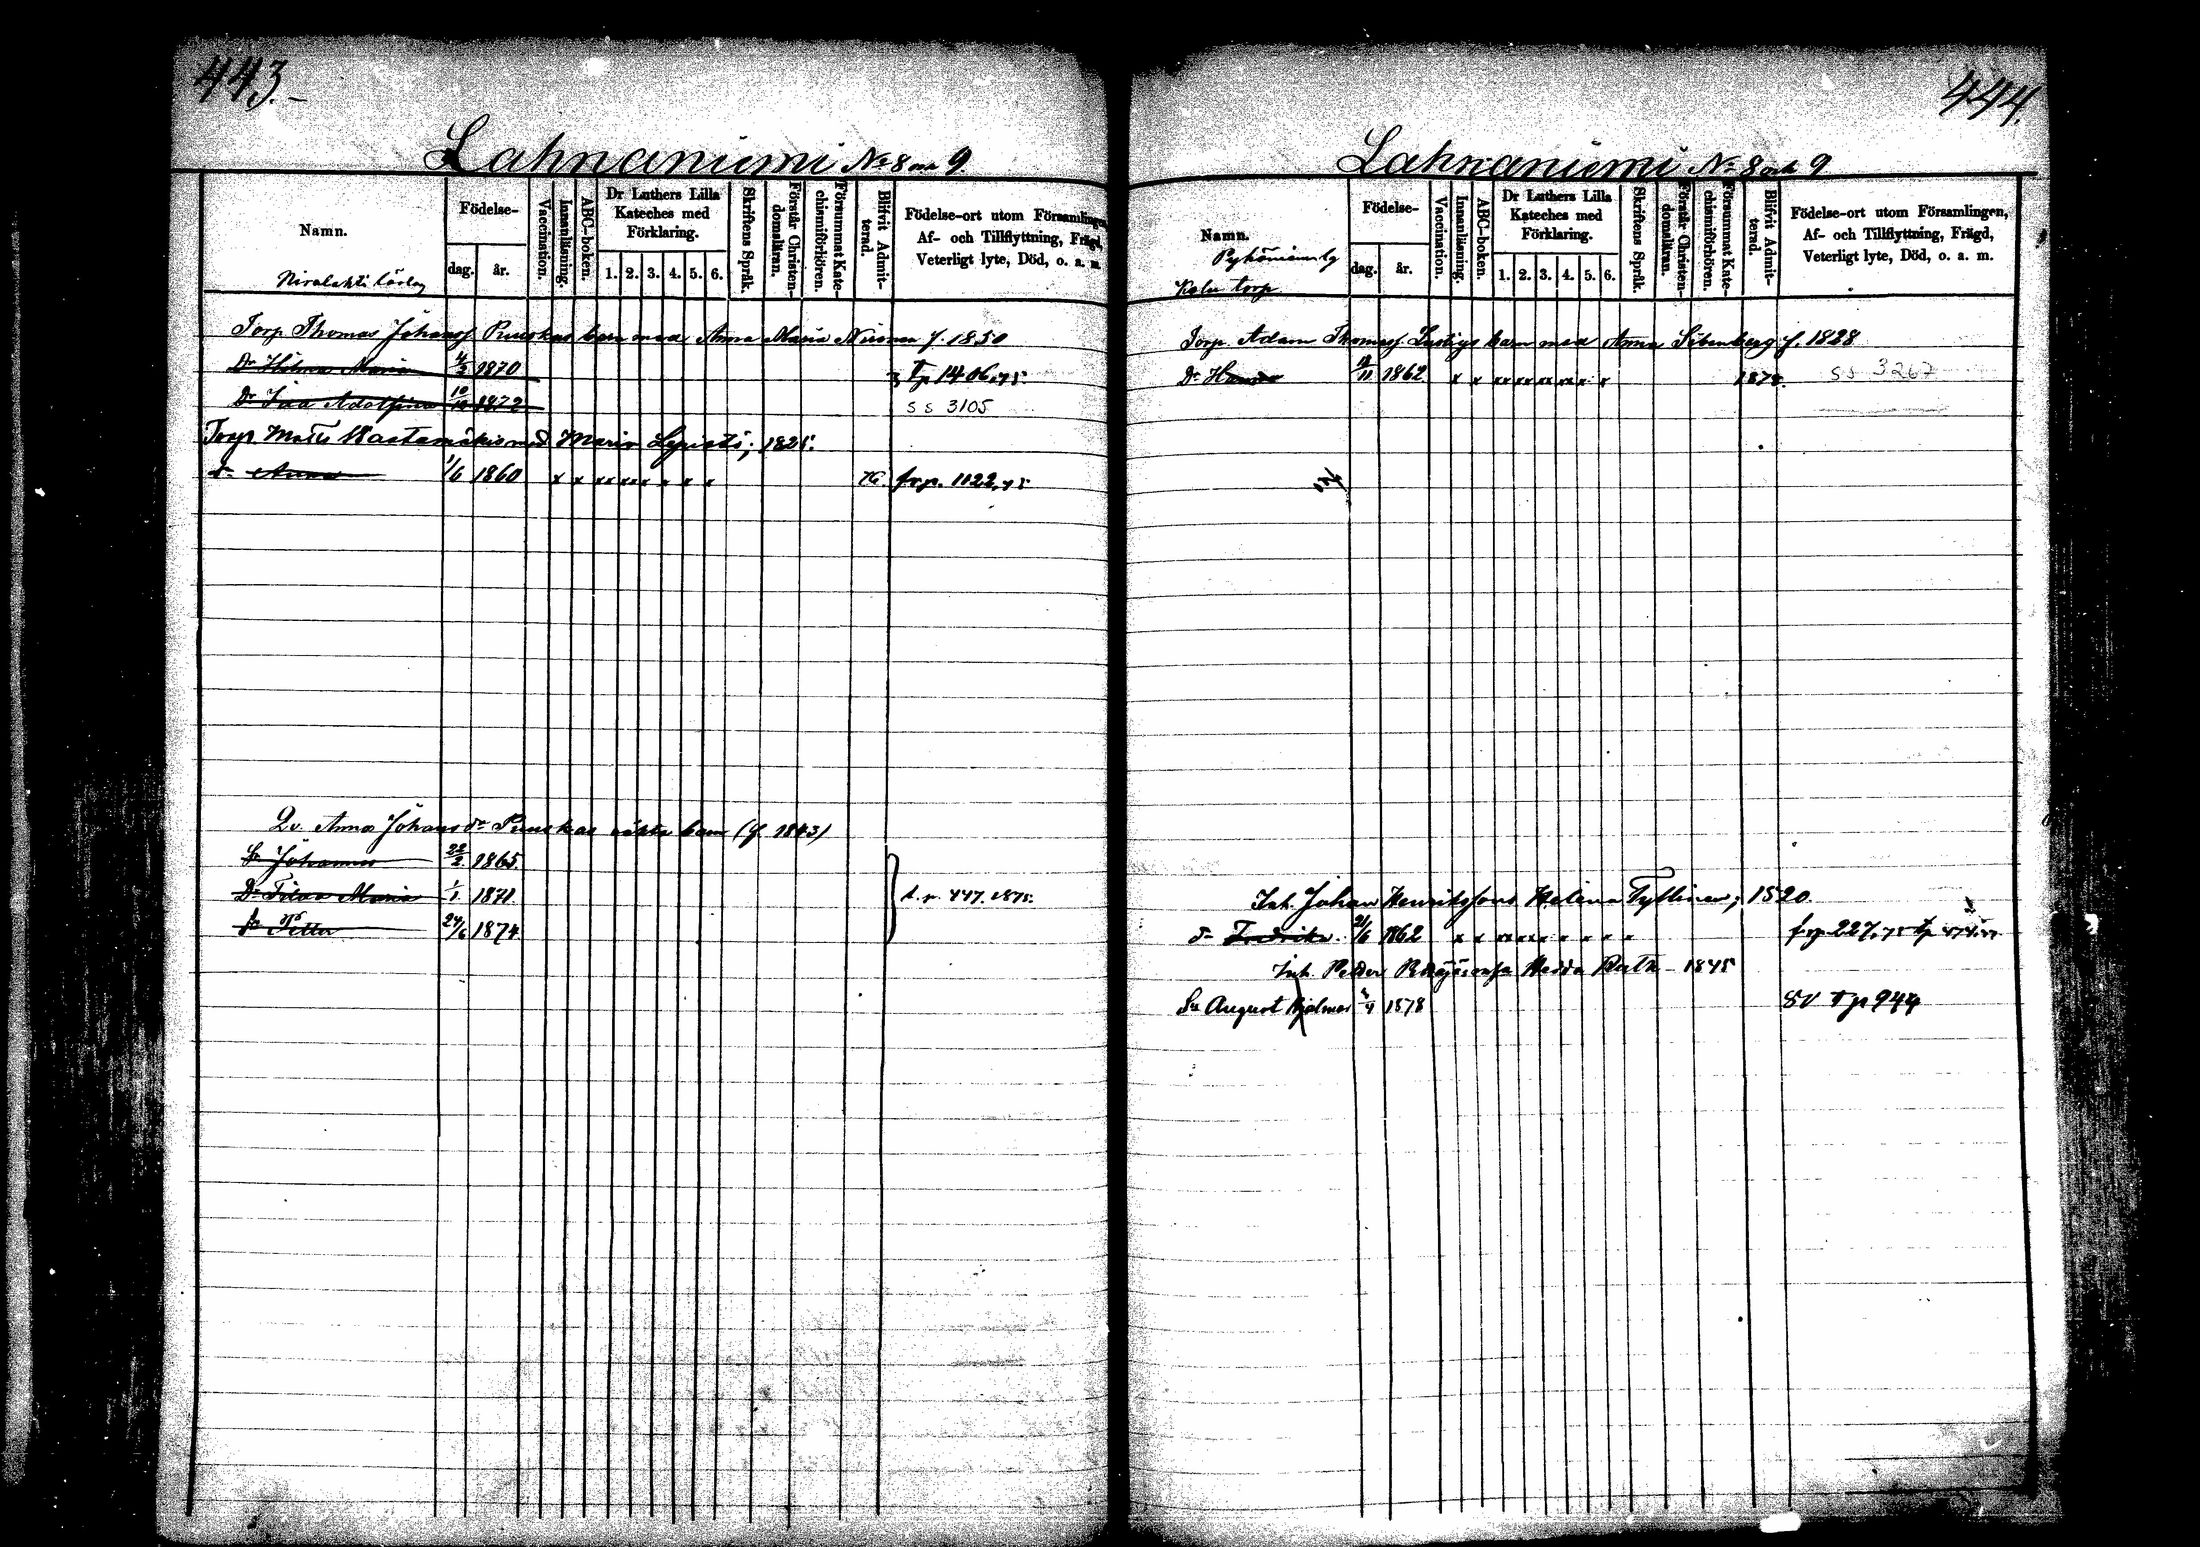 443.
Lahnaniemi No 8 och 9.
Namn.
Födelse-
dag. år.
Vaccination.
Innanläsning.
ABC-boken.
Dr Luthers Lilla Kateches med Förklaring.
1. 2. 3. 4. 5. 6.
Skriftens Språk.
Förstår Christendomsläran.
Försummat Katechismiförhören.
Blifvit Admitterad.
Födelse-ort utom Församlingen,
Af- och Tillflyttning, Frägd,
Veterligt lyte, Död, o. a. m.
Torp Thomas Johanss Punskas barn med Anna Maria f. 1850
Dr Hilma Maria 4/3 1870 Tp 1406,75.
Dr Ida Adolfina 10/12 1872 ss 3105
Torp. Matts med Maria ; 1825.
dr Anna 1/6 1860 x x xx xx x x x x 76 frp. 1122,75
Qv. Anna Johansdr Punskas oäkta barn (f. 1843)
Sn Johannes 22/2 1865
Dr Maria 1/1 1871 t. p. 447. 1875.
Sn Petter 24/6 1874
444.
Lahnaniemi No 8 och 9
Namn.
Födelse-
dag. år.
Vaccination.
Innanläsning.
ABC-boken.
Dr Luthers Lilla Kateches med Förklaring.
1. 2. 3. 4. 5. 6.
Skriftens Språk.
Förstår Christendomsläran.
Försummat Katechismiförhören.
Blifvit Admitterad.
Födelse-ort utom Församlingen,
Af- och Tillflyttning, Frägd,
Veterligt lyte, Död, o. a. m.
torp
Torp. Adam Thomass. Lustigs barn med Anna f. 1828
Dr Hanna 18/11 1862 x x xx xx xx xx x x 1878. ss 3267
Inh. Johan Henrikssons Helena Tyllinen; 1820.
dr Fredrika. 21/6 1862 x x xx xx x x x x x frp 227,75 tp
Inh. Petter Hedda 1845
Sn August Hjalmar 1878 SV Tp 944